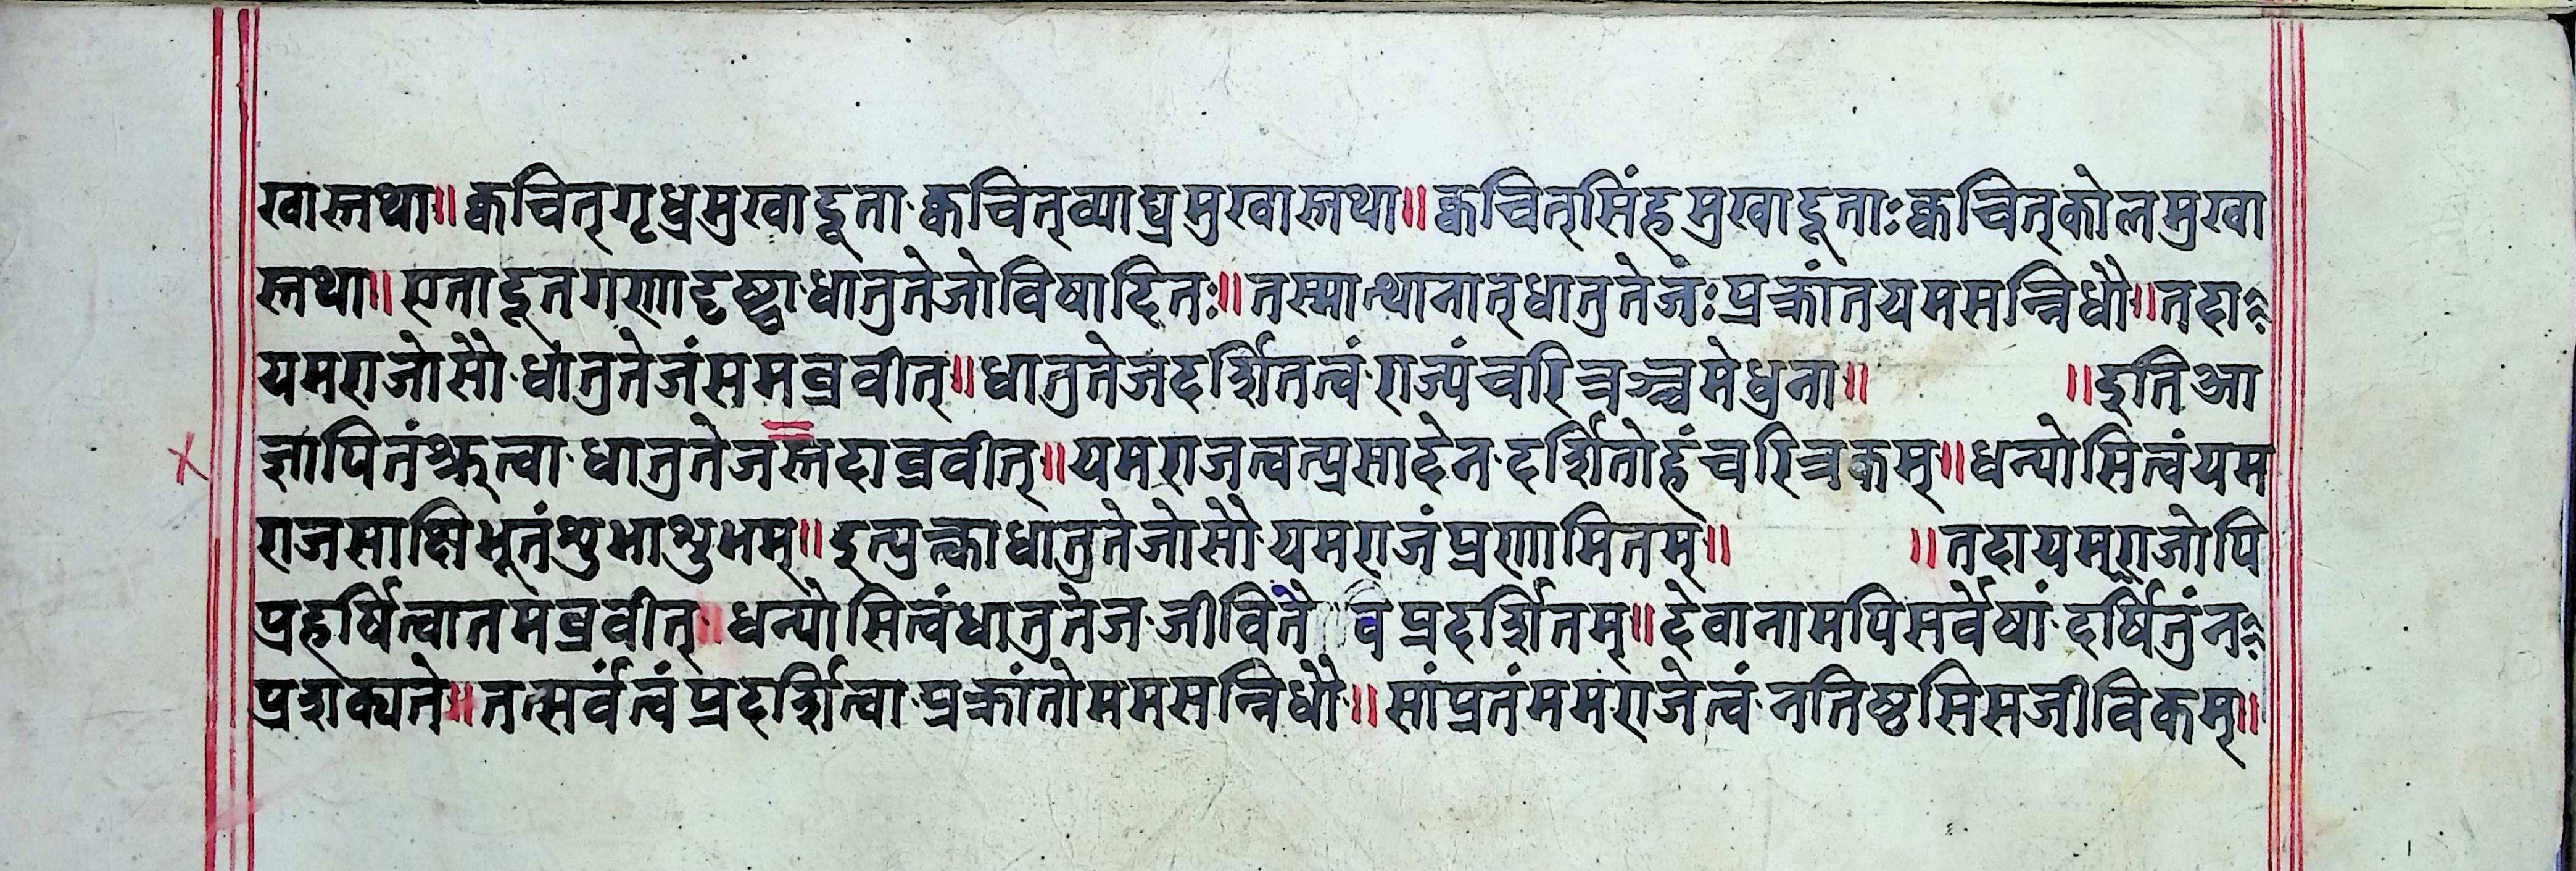 खास्तथा॥क्वचित्गृध्रमुखादूता·क्वचित्व्याघ्रमुखास्तथा॥क्वचित्सिंहमुखादूताःक्वचित्कोलमुखा
स्तथा॥एतादूतगणादृष्ट्वा·धातुतेजोविषादितः॥तस्मात्थानात्धातुतेजंःप्रक्रांतयमसन्निधौ॥तदा
यमराजोसौ·धातुतेजंसमब्रवीत्॥धातुतेजदर्शितत्वं·राज्यंचरित्रञ्चमेधुना॥ ॥इतिआ
ज्ञापितंश्रुत्वा·धातुतेजस्तदाब्रवीत्॥यमराजत्वत्प्रसादेन·दर्शितोहंचरित्रकम्॥धन्योसित्वंयम
राजसाक्षिभूतंशुभाशुभम्॥इत्युक्त्वाधातुतेजोसौ·यमराजंप्रणामितम्॥ ॥तदायमराजोपि
प्रहर्षित्वातमब्रवीत्॥धन्योसित्वंधातुतेज·जीवितै व प्रदर्शितम्॥देवानामपिसर्वेषां·दर्षितुंन
प्रशक्यते॥तत्सर्वंत्वंप्रदर्शित्वा·प्रक्रांतोममसन्निधौ॥सांप्रतंममराजेत्वं·नतिष्ठसिसजीविकम्॥